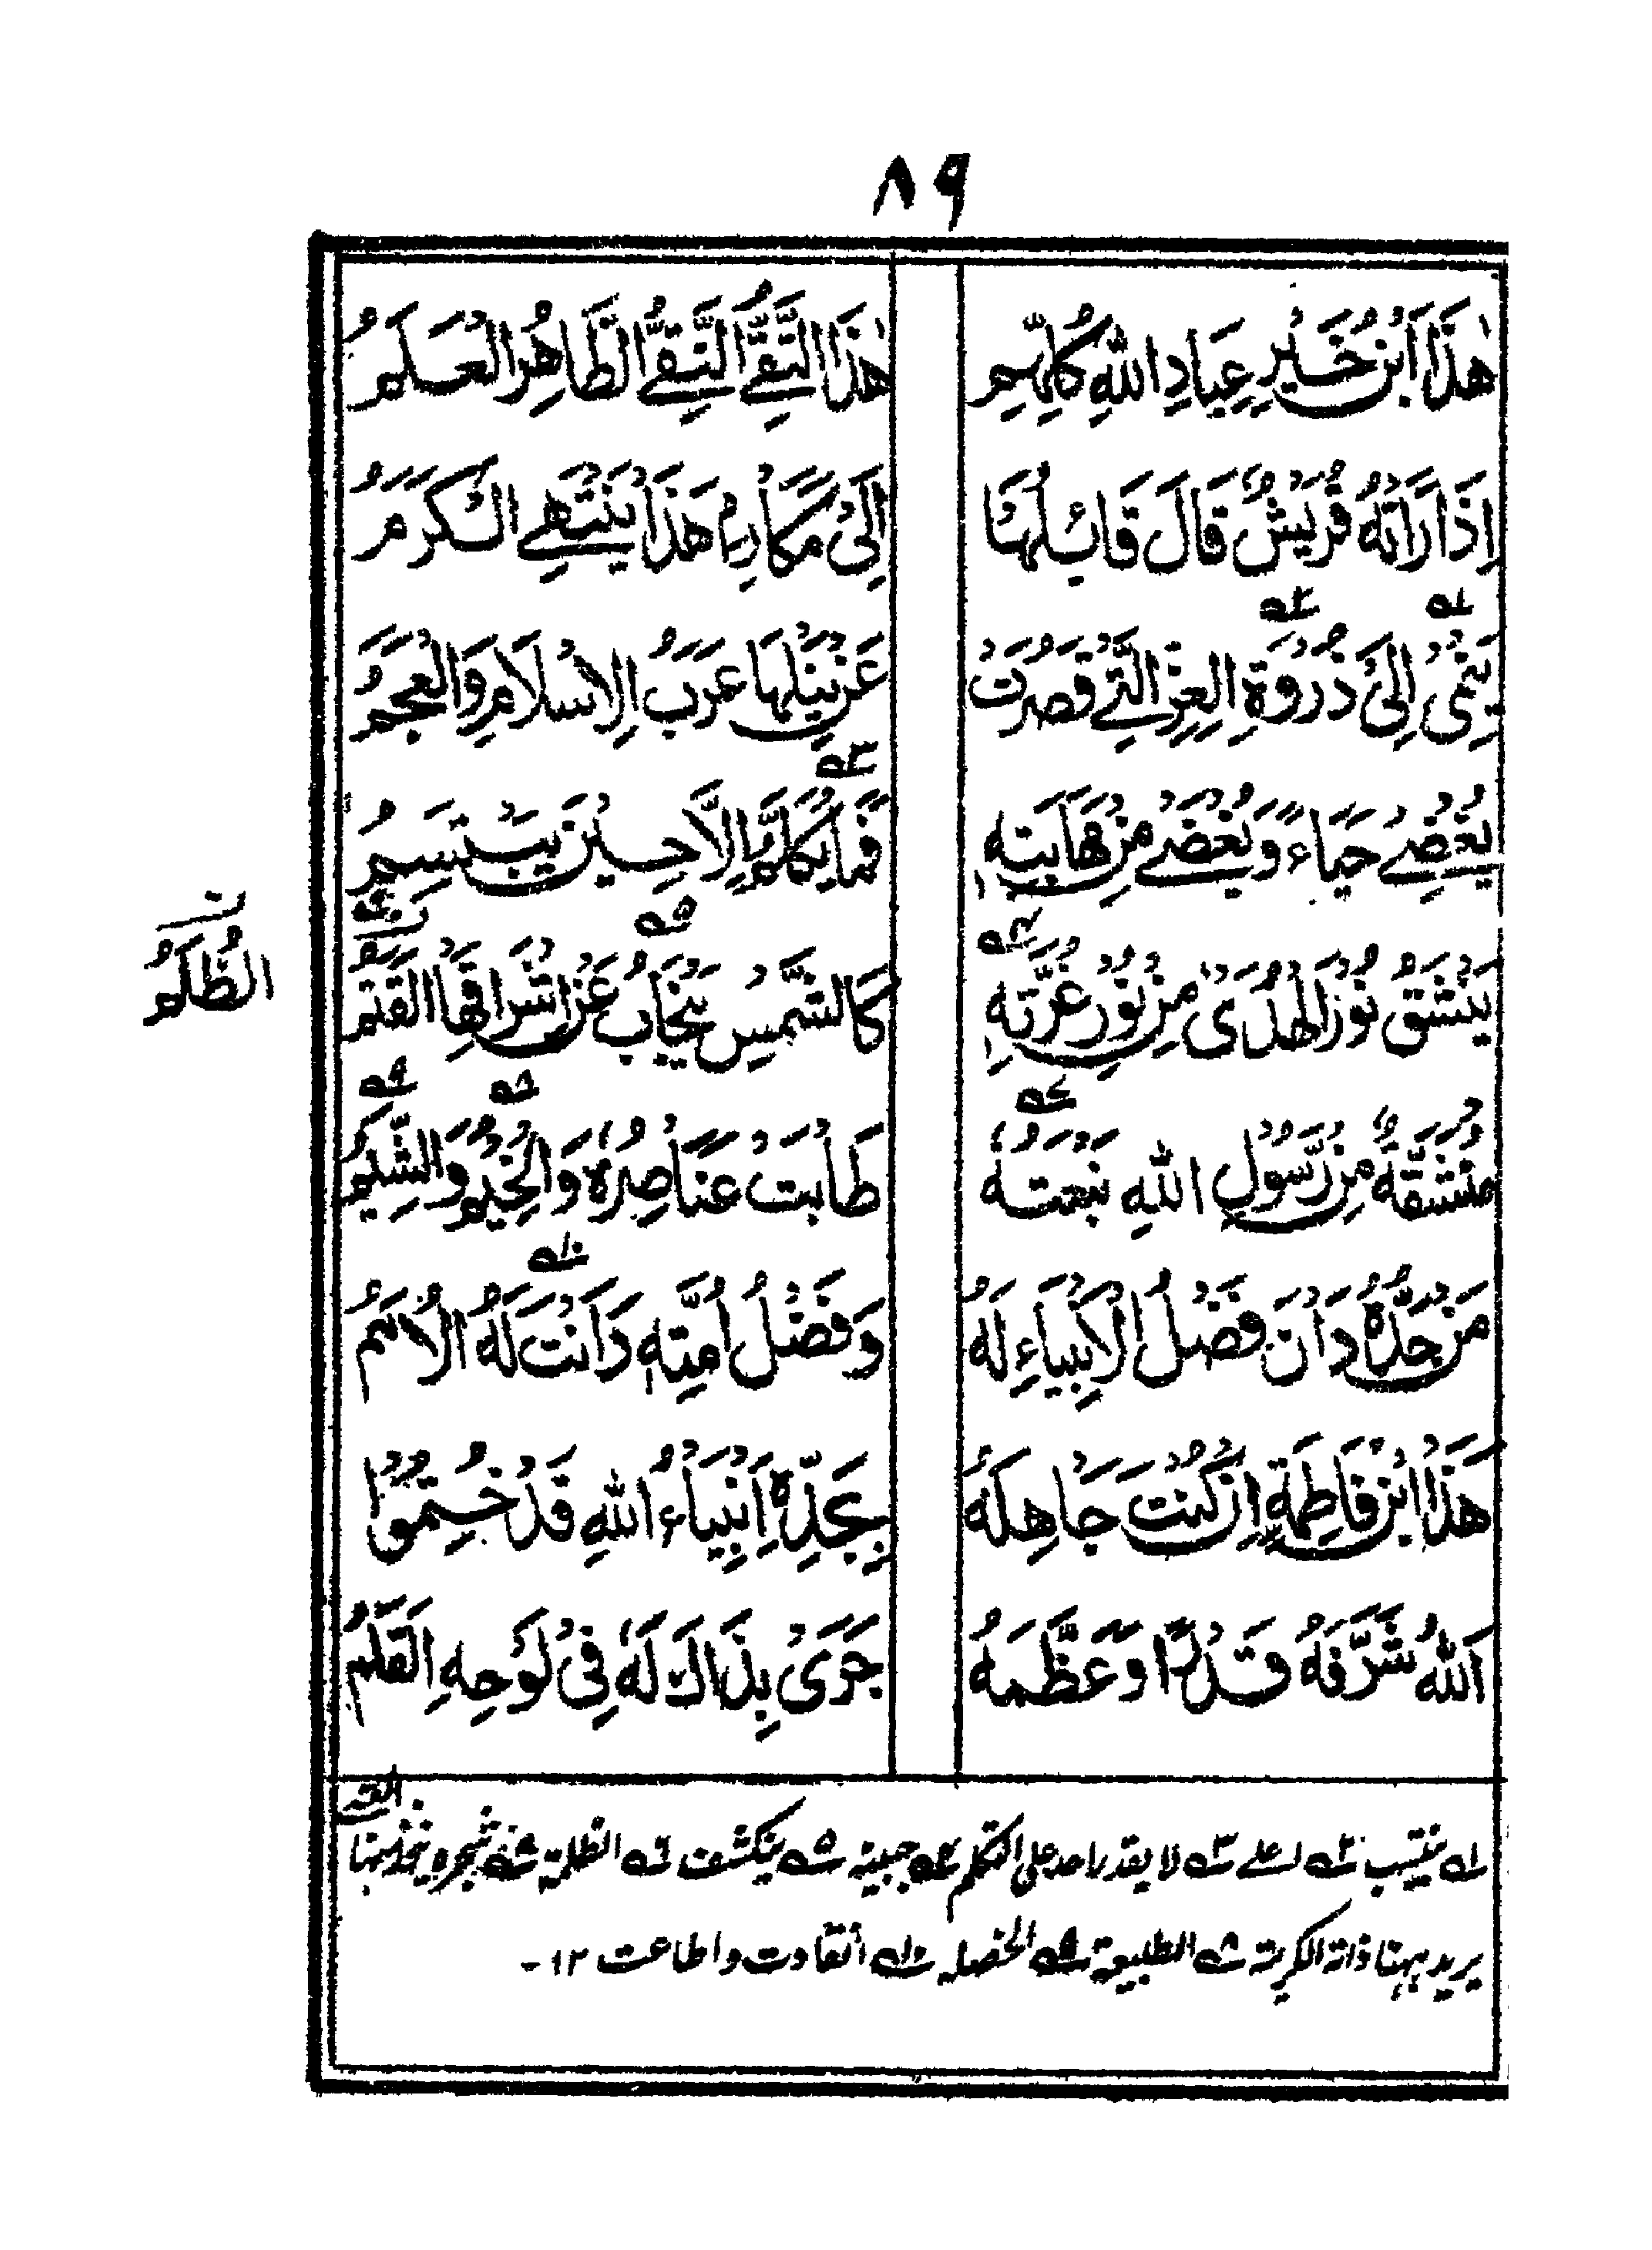 ٨٩
هٰذَا ابْنُ خَيْرِ عِبَادِ اللهِ كُلِّهِمِ هٰذَا التَّقِيُّ النَّقِيُّ الطَّاهِرُ الْعَلَمُ
اِذَا رَاَتْهُ قُرَيْشٌ قَالَ قَائِلُهَا اِلَىٰ مَكَارِمِ هَذَا يَنْتَهِي الْكَرَمُ
يَنْمِىْ اِلَىٰ ذُرْوَةِ الْعِزِّ الَّتِيْ قَصُرَتْ عَنْ نَيْلِهَا عَرَبُ الْاِسْلَامِ وَالْعَجَمُ
يُغْضِيْ حَيَاءً وَيُغْضٰے مِنْ مَهَابَتِهٖ فَمَا يُكَلَّمُ اِلَّا حِيْنَ يَبْتَسِمُ
يَنْشَقُّ نُوْرُ الْهُدٰى مِنْ نُوْرِ غُرَّتِهٖ كَالشَّمْسِ يَنْجَابُ عَنْ اِشْرَاقِهَا الْقَتَمُ
الظُّلَمُ
مُنْشَقَّةٌ مِنْ رَسُوْلِ اللهِ نَبْعَتُهٗ طَابَتْ عَنَاصِرُهٗ وَالْخِيْمُ وَالشِّيَمُ
مَنْ جَدُّهٗ دَانَ فَضْلُ الْاَنْبِيَاءِ لَهٗ وَفَضْلُ اُمَّتِهٖ دَانَتْ لَهُ الْاُمَمُ
هَذَا ابْنُ فَاطِمَةٍ اِنْ كُنْتَ جَاهِلَهٗ بِجَدِّهٖ اَنْبِيَاءُ اللهِ قَدْ خُتِمُوْا
اَللهُ شَرَّفَهٗ قَدْرًا وَعَظَّمَهٗ جَرَىٰ بِذَاكَ لَهٗ فِىْ لَوْحِهِ الْقَلَمُ
١ه ينتسب ٢ه اعلے ٣ه لا يقدر احد على التكلم ٤ه جبينه ٥ه ينكشف ٦ه الظلمة ٧ه شجرة يتخذ منها
يريد بهنا ذاته الكريمة ٨ه الطبيعة ٩ه الخصله ١٠ه انقادت واطاعت ١٢-